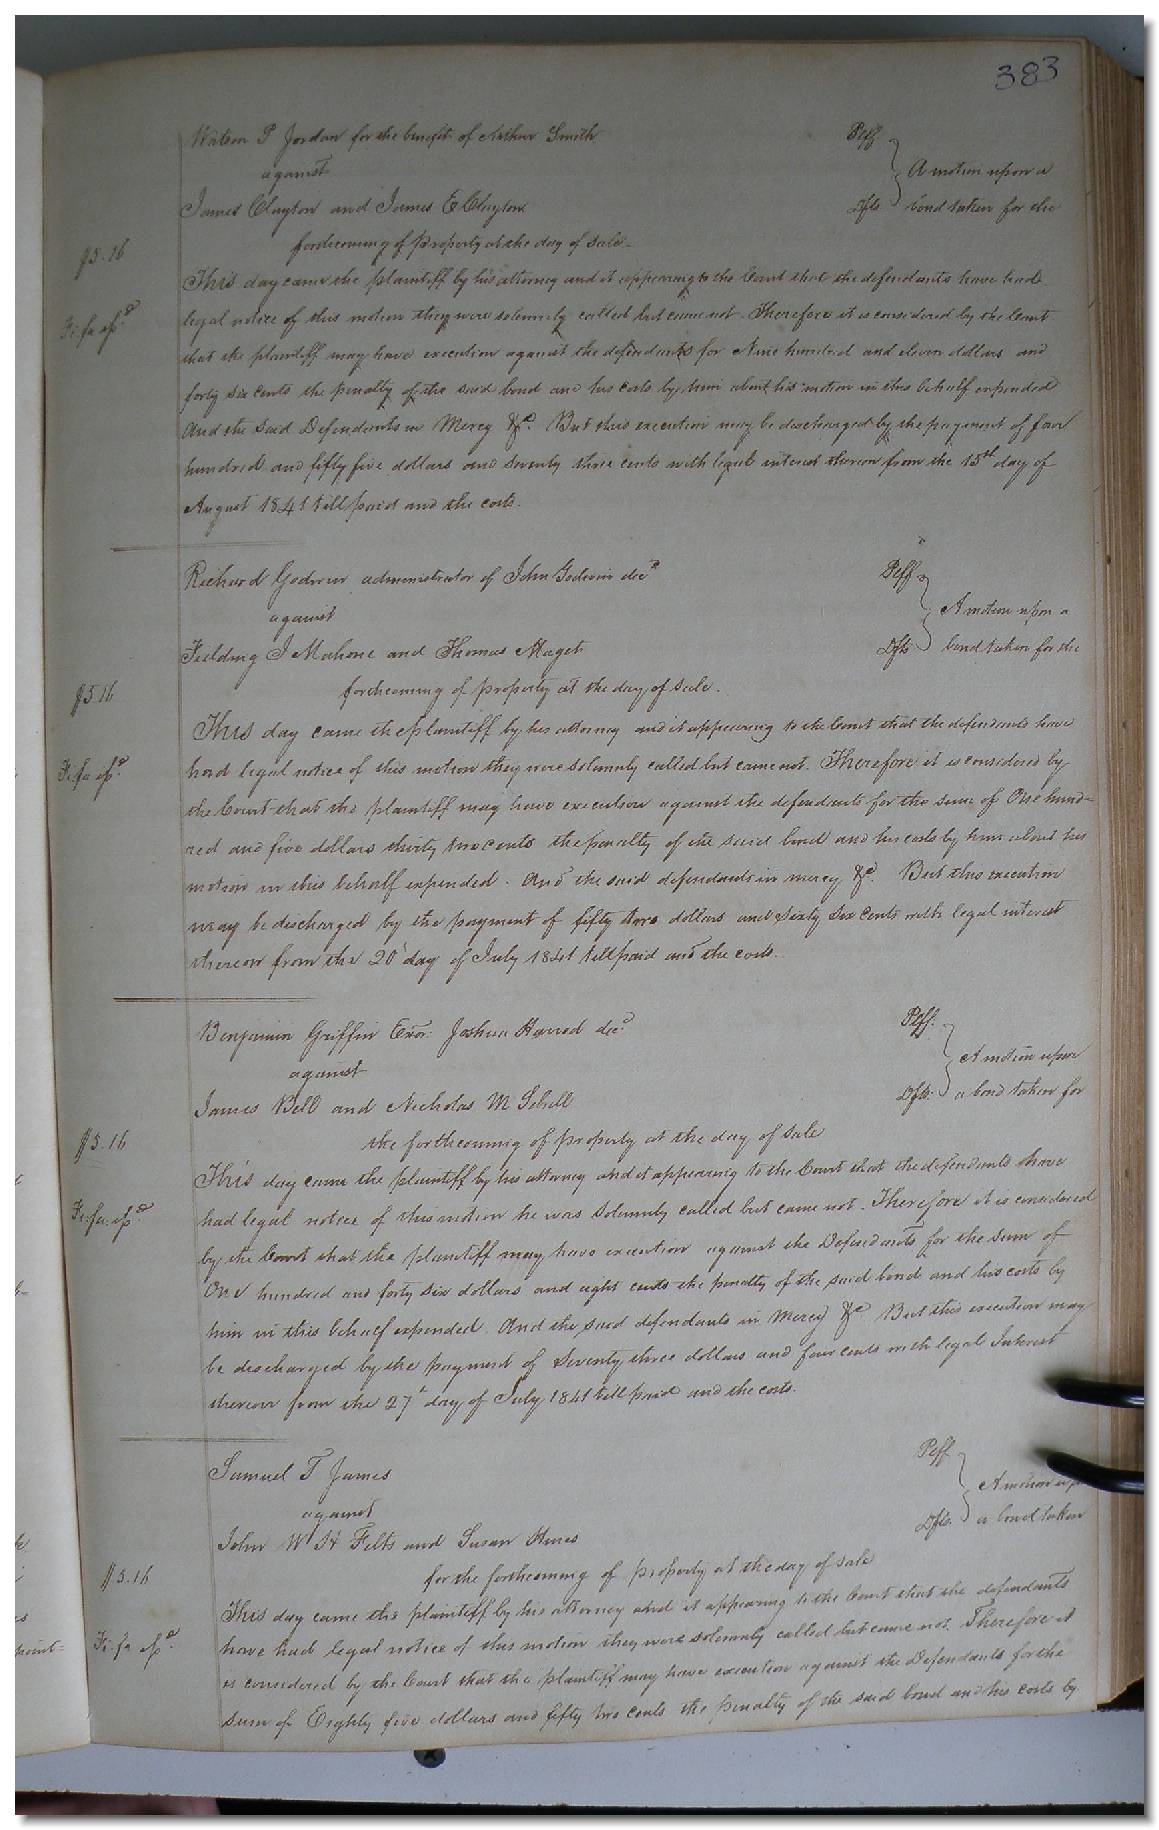 383
Watson P Jordan for the benefit of Arthur Smith Plff
against A motion upon a
James Clayton and James E Clayton Dfts bond taken for the
forthcoming of property at the day of sale
$5.16
This day came the plaintiff by his attorney and it appearing to the Court that the defendants have had
Fi. fa
legal notice of this motion they were solemnly called but came not. Therefore it is considered by the Court
that the plaintiff may have execution against the defendants for Nine hundred and eleven dollars and
forty six cents the penalty of the said bond and his costs by him about his motion in this behalf expended
And the said Defendants in Mercy &c. But this execution may be discharged by the payment of four
hundred and fifty five dollars and seventy three cents with legal interest thereon from the 15th day of
August 1841 till paid and the costs.
Richard Godwin administrator of John Godwin decd Plff
against A motion upon a
Fielding J Mahone and Thomas Maget Dfts bond taken for the
forthcoming of property at the day of sale.
$5.16
This day came the plaintiff by his attorney and it appearing to the Court that the defendants have
Fi. fa
had legal notice of this motion they were solemnly called but came not. Therefore it is considered by
the Court that the plaintiff may have execution against the defendants for the sum of One hund-
red and five dollars thirty two cents the penalty of the said bond and his costs by him about his
motion in this behalf expended. And the said defendants in mercy &c. But this execution
may be discharged by the payment of fifty two dollars and sixty six cents with legal interest
thereon from the 20th day of July 1841 till paid and the costs.
Benjamin Griffin Exor: Joshua Harrod decd Plff.
against A motion upon
James Bell and Nicholas M Sebrell Dfts. a bond taken for
the forthcoming of property at the day of sale
$5.16
This day came the plaintiff by his attorney and it appearing to the Court that the defendants have
Fi. fa.
had legal notice of this motion he was solemnly called but came not. Therefore it is considered
by the Court that the plaintiff may have execution against the Defendants for the sum of
One hundred and forty six dollars and eight cents the penalty of the said bond and his costs by
him in this behalf expended. And the said defendants in Mercy &c. But this execution may
be discharged by the payment of Seventy three dollars and four cents with legal Interest
thereon from the 27th day of July 1841 till paid and the costs.
Samuel T James Plff
against A motion upon
John W H Felts and Susan Hines Dfts. a bond taken
for the forthcoming of property at the day of sale
$5.16
This day came the plaintiff by his attorney and it appearing to the Court that the defendants
have had legal notice of this motion they were solemnly called but came not. Therefore it
Fi. fa
is considered by the Court that the plaintiff may have execution against the Defendants for the
sum of Eighty five dollars and fifty two cents the penalty of the said bond and his costs by